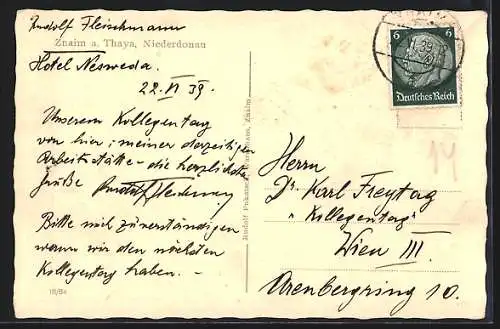 Rudolf Fleischmann
Znaim a. Thaya, Niederdonau
Hotel Nesweda.
22. VI 39.
Unserem Kollegentag
von hier, meiner derzeitigen
Arbeitsstätte - die herzlichsten
Grüße Rudolf Fleischmann
Bitte mich zu verständigen
wann wir den nächsten
Kollegentag haben. -
18/Be
Rudolf Znaim
6 6
Deutsches Reich
14
Herrn
Dr. Karl Freytag
"Kollegentag"
Wien III.
Arenbergring 10.